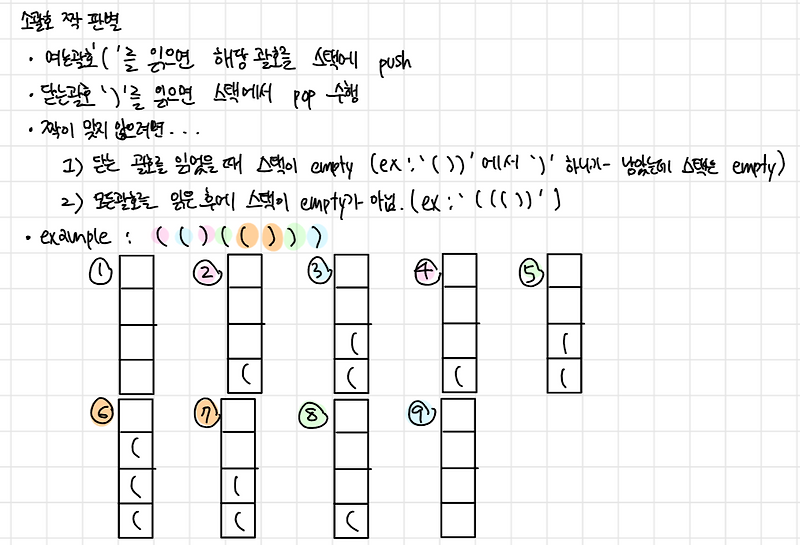 소괄호 짝 판별
· 여는괄호 '('를 읽으면 해당 괄호를 스택에 push
· 닫는괄호 ')'를 읽으면 스택에서 pop 수행
· 짝이 맞지 않으려면...
1) 닫는 괄호를 읽었을 때 스택이 empty (ex: '())'에서 ')' 하나가 남았는데 스택은 empty)
2) 모든괄호를 읽은 후에 스택이 empty가 아님. (ex: '((())')
· example : (()(()))
① ② ③ ④ ⑤
( (
( ( ( (
⑥ ⑦ ⑧ ⑨
(
( (
( ( (